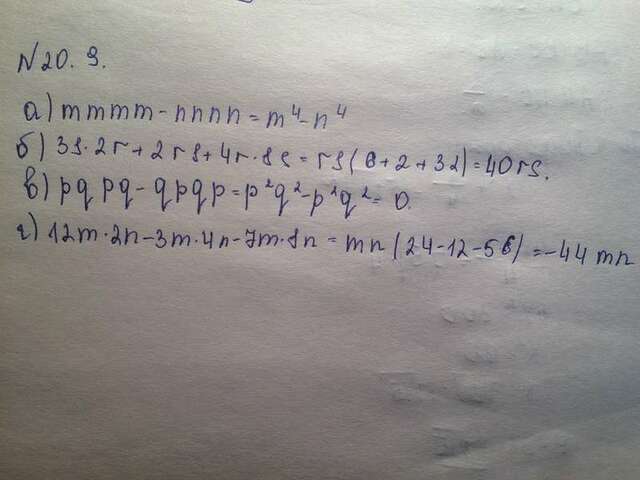 N20.9.
а) mmmm - nnnn = m⁴ - n⁴
б) 3s·2r + 2rs + 4r·8s = rs(6+2+32) = 40rs.
в) pqpq - qpqp = p²q² - p²q² = 0.
г) 12m·2n - 3m·4n - 7m·8n = mn(24-12-56) = -44mn